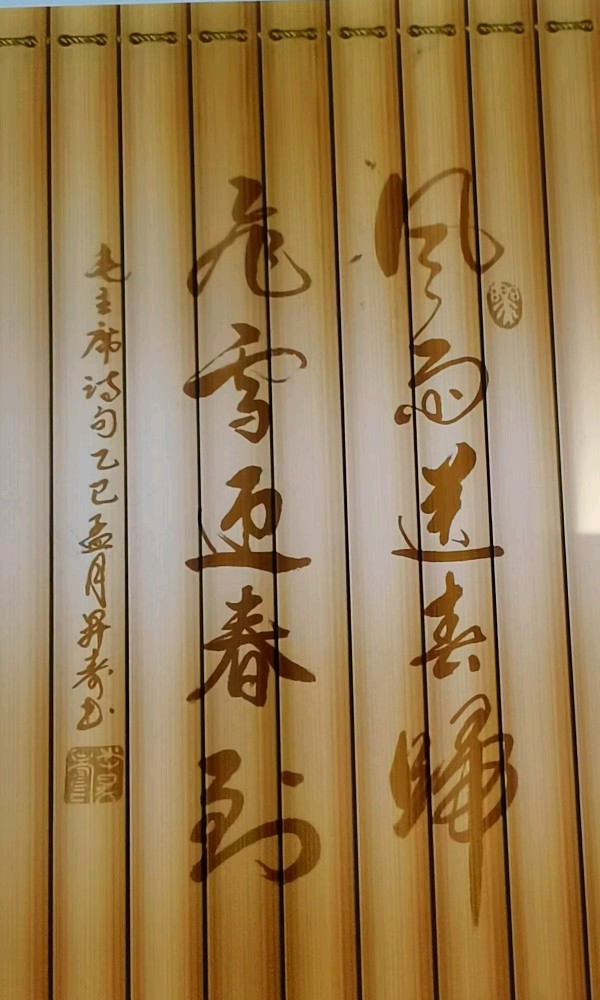 风雨送春歸
飛雪迎春到
毛主席诗句乙巳孟月昇寿书